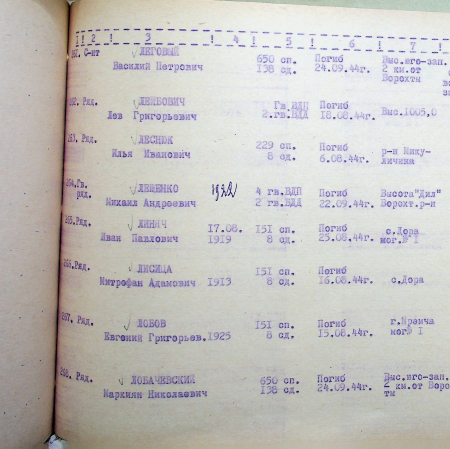 1! 2 ! 3 ! 4 ! 5 ! 6 ! 7 !
261. С-нт ЛЕГОВЫЙ 650 сп. Погиб Выс.юго-зап.
Василий Петрович 138 сд. 24.09.44г. 2 км.от
Ворохты
262. Ряд. ЛЕЙБОВИЧ Гв.ВДП Погиб
Лев Григорьевич 2.гв.ВДД 18.08.44г. Выс.1005,0
263. Ряд. ЛЕСНЮК 229 сп. Погиб р-н Мику-
Илья Иванович 8 сд. 6.08.44г. личина
264.Гв. ЛЕЩЕНКО 1922 4 гв.ВДП Погиб Высота"Дил"
ряд. Михаил Андреевич 2 гв.ВДД 22.09.44г. Ворохт.р-н
265.Ряд. ЛИНЯЧ 17.08. 151 сп. Погиб с.Дора
Иван Павлович 1919 8 сд. 25.08.44г. мог.№ 1
266.Ряд. ЛИСИЦА 151 сп. Погиб
Митрофан Адамович 1913 8 сд. 16.08.44г. с.Дора
267. Ряд. ЛОБОВ 151 сп. Погиб г.Яремча
Евгений Григорьев. 1925 8 сд. 15.08.44г. мог№ 1
268. Ряд. ЛОБАЧЕВСКИЙ 650 сп. Погиб Выс.юго-зап.
Маркиян Николаевич 138 сд. 24.09.44г. 2 км.от Ворох
ты